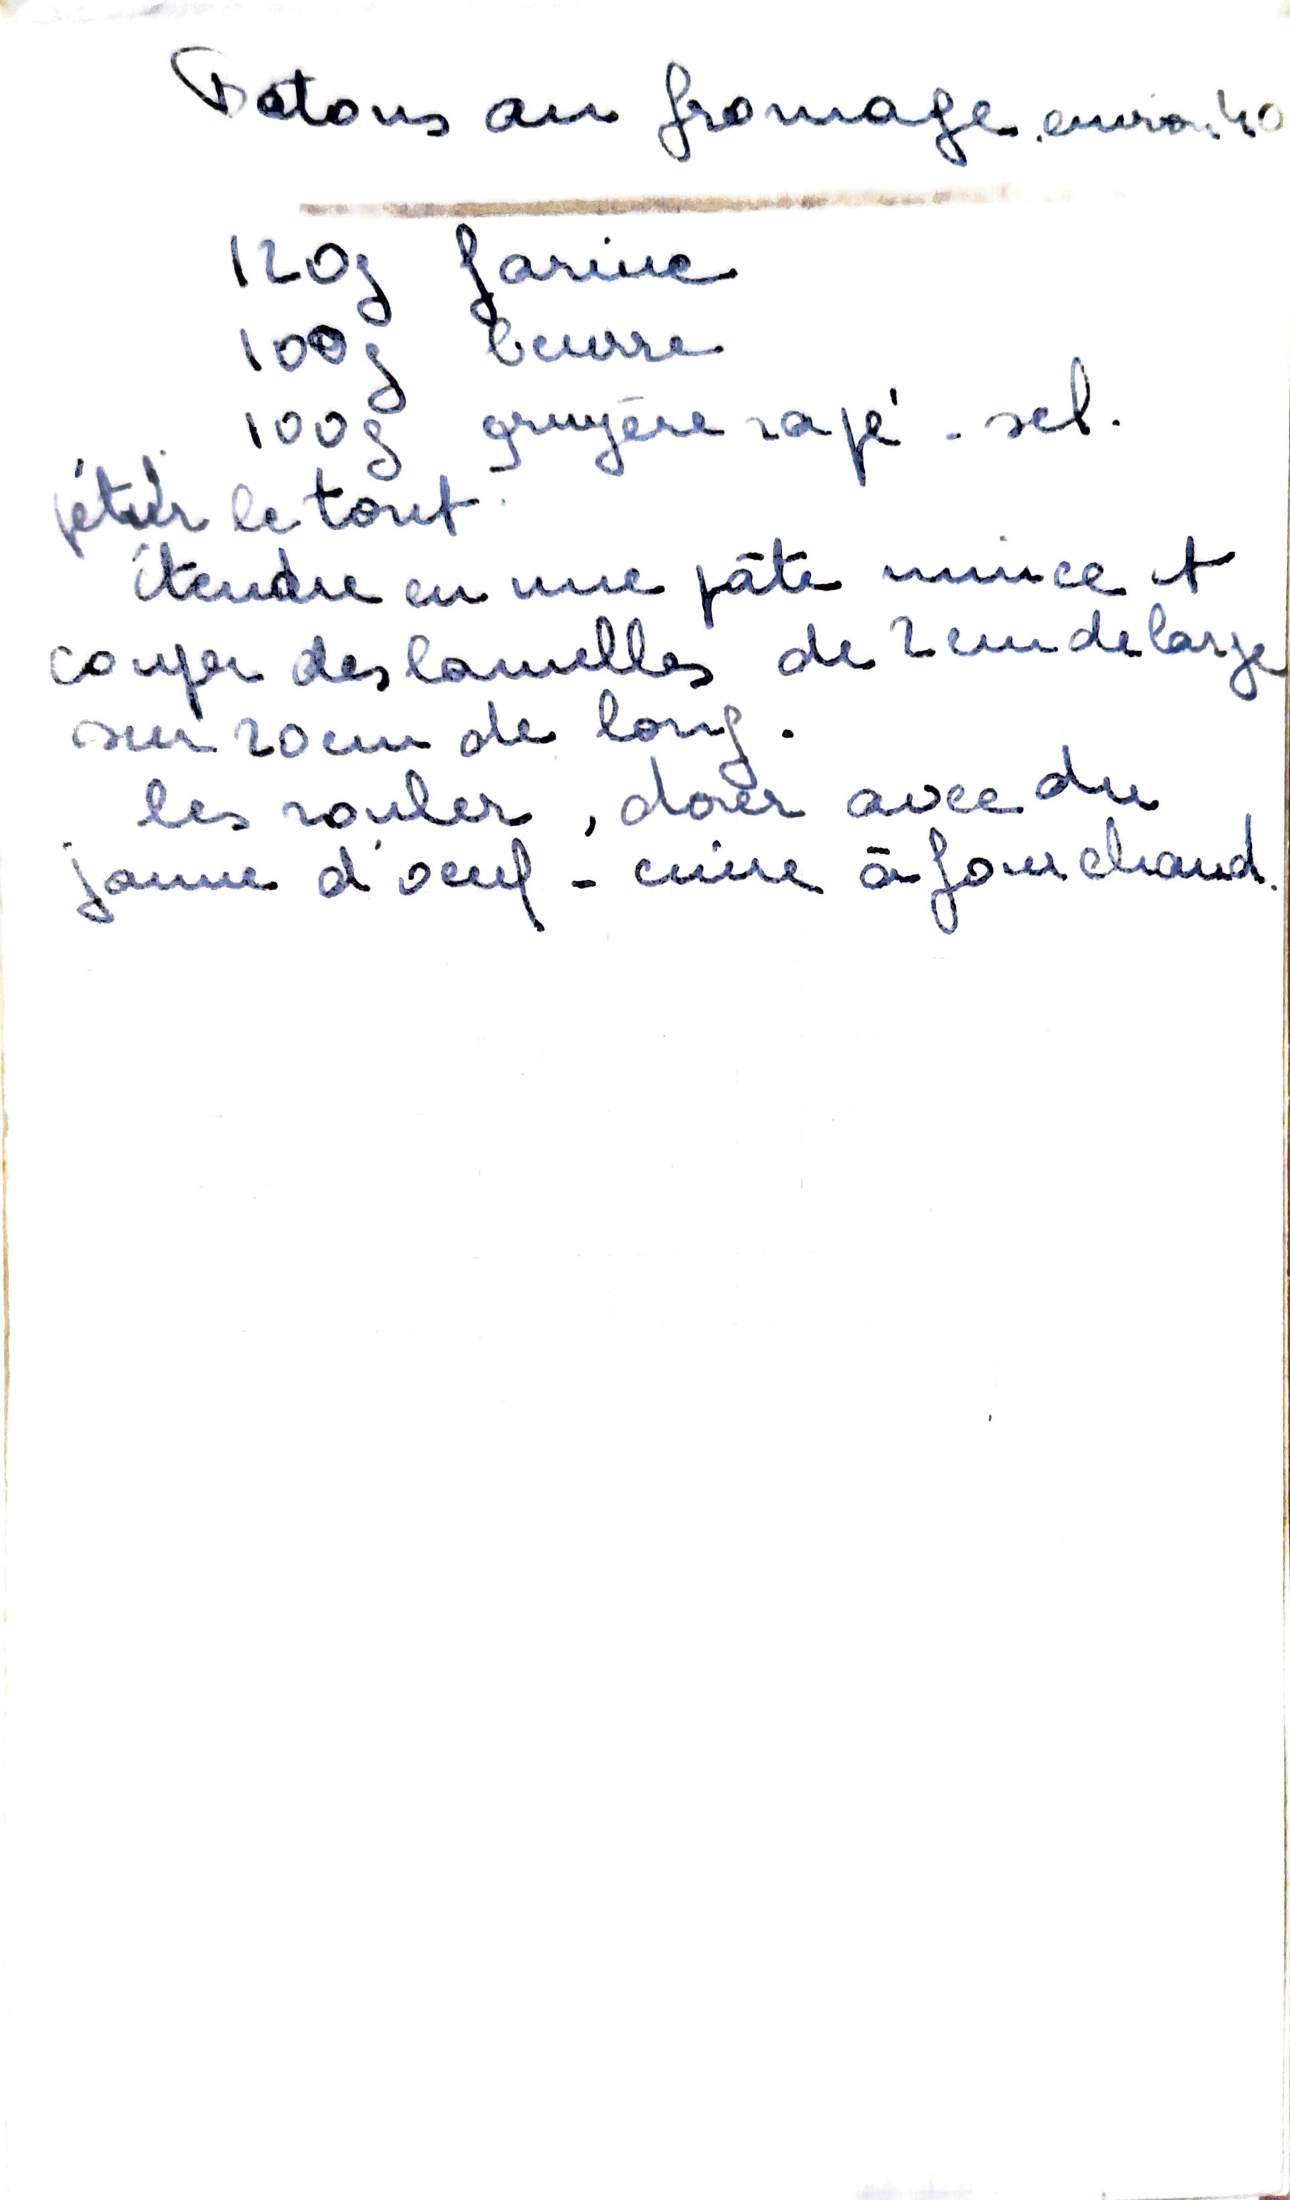 Batons au fromage. environ 40
120g farine
100g beurre
100g gruyère rapé - sel.
pétrir le tout.
étendre en une pâte mince et
couper des lamelles de 2 cm de large
sur 20 cm de long.
les rouler, dorer avec du
jaune d'oeuf - cuire à four chaud.